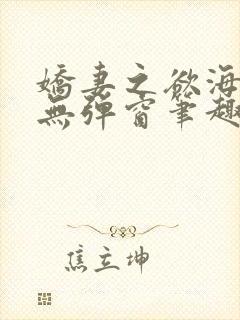 嬌妻之慾海
無彈窗筆趣
焦立坤